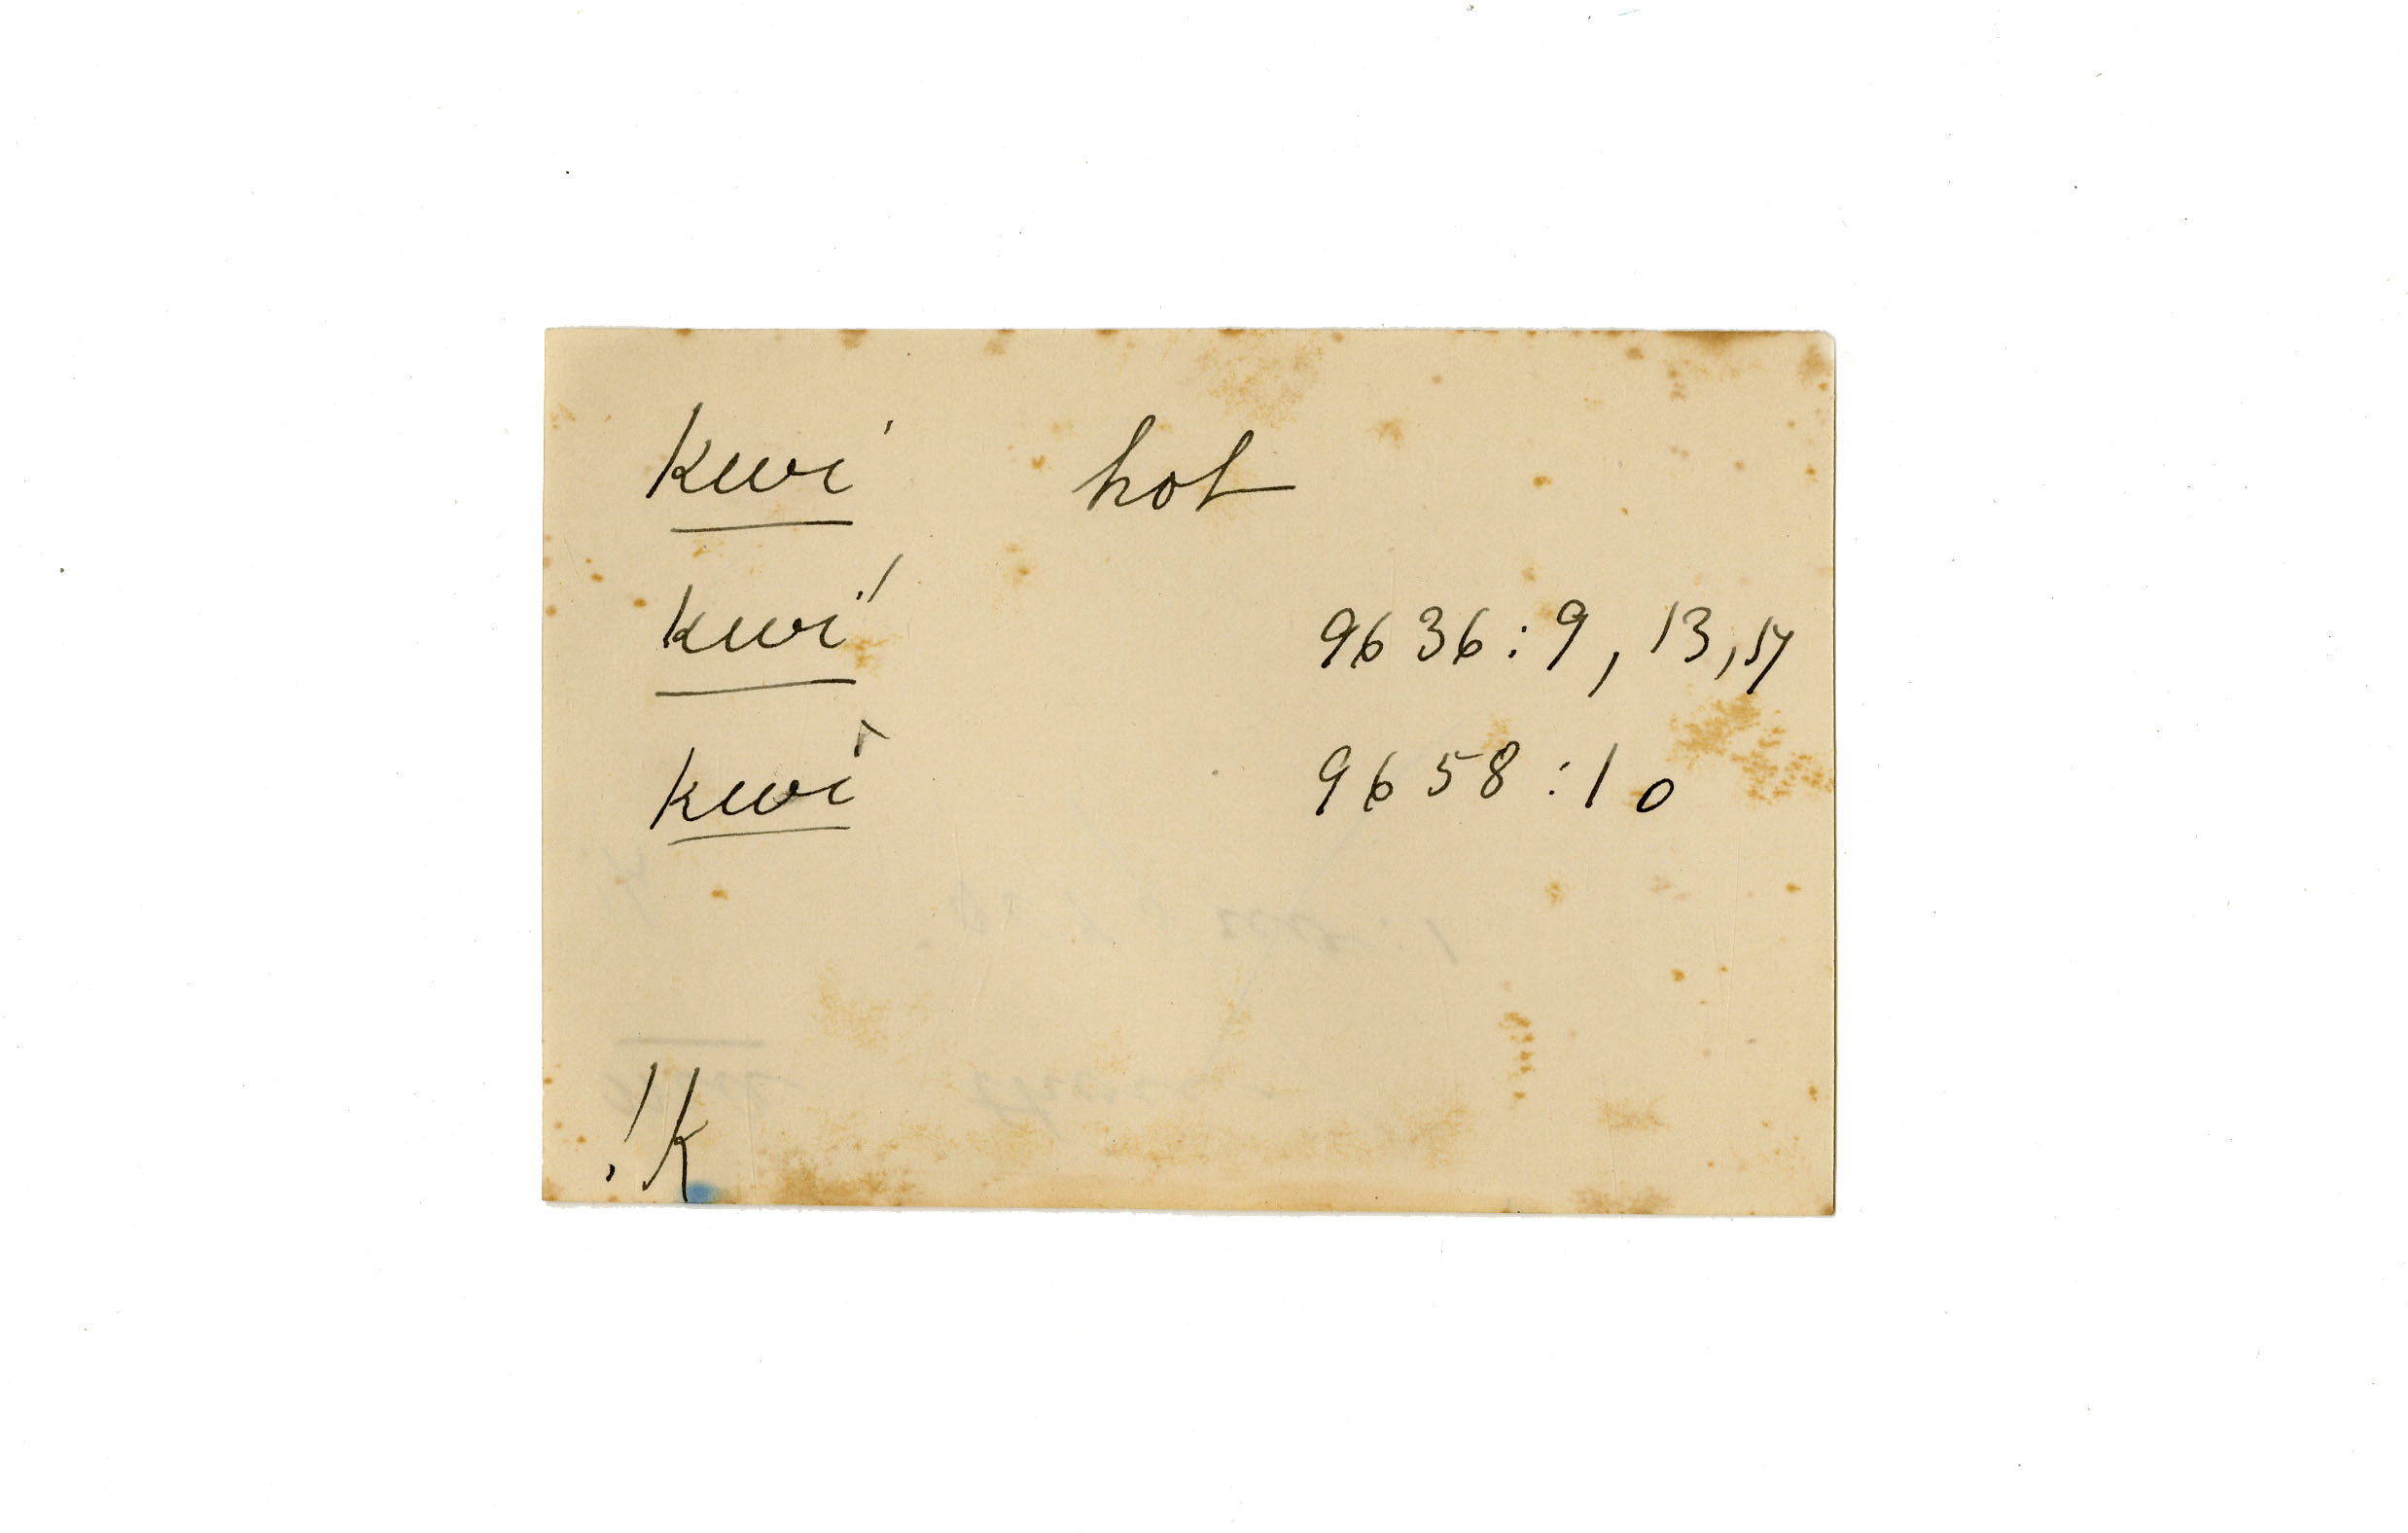 kwi hot
kwí 9636:9, 13, 17
kwi 9658:10
!k